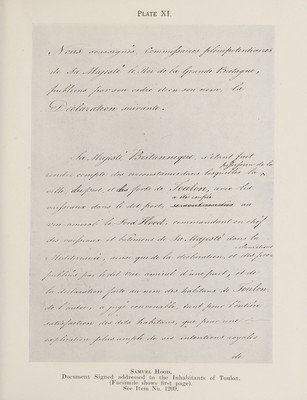 PLATE XI.
Nous soussignés Commissaires plenipotentiaires
de Sa Majesté le Roi de la Grande Bretagne,
publions par son ordre et en son nom, la
Declaration suivante.
Sa Majesté Britannique s'étant fait
possession de la
rendre compte des circonstances dans lesquelles la
ville, du port, et des forts de Toulon, avec les
a été remise
vaisseaux dans le dit port, au
vice-amiral le Lord Hood, commandant en chef
des vaisseaux et bâtimens de Sa Majesté dans la
Mediterranée, ainsi que de la declaration, et des
publiés par ledit vice amiral d'une part, et de
la declaration faite au nom des habitans de Toulon
de l'autre, a jugé convenable, tant pour l'entière
satisfaction des dits habitans, que pour une
explication plus ample de ses intentions royales
de
SAMUEL HOOD.
Document Signed addressed to the Inhabitants of Toulon.
(Facsimile shows first page).
See Item No. 1209.